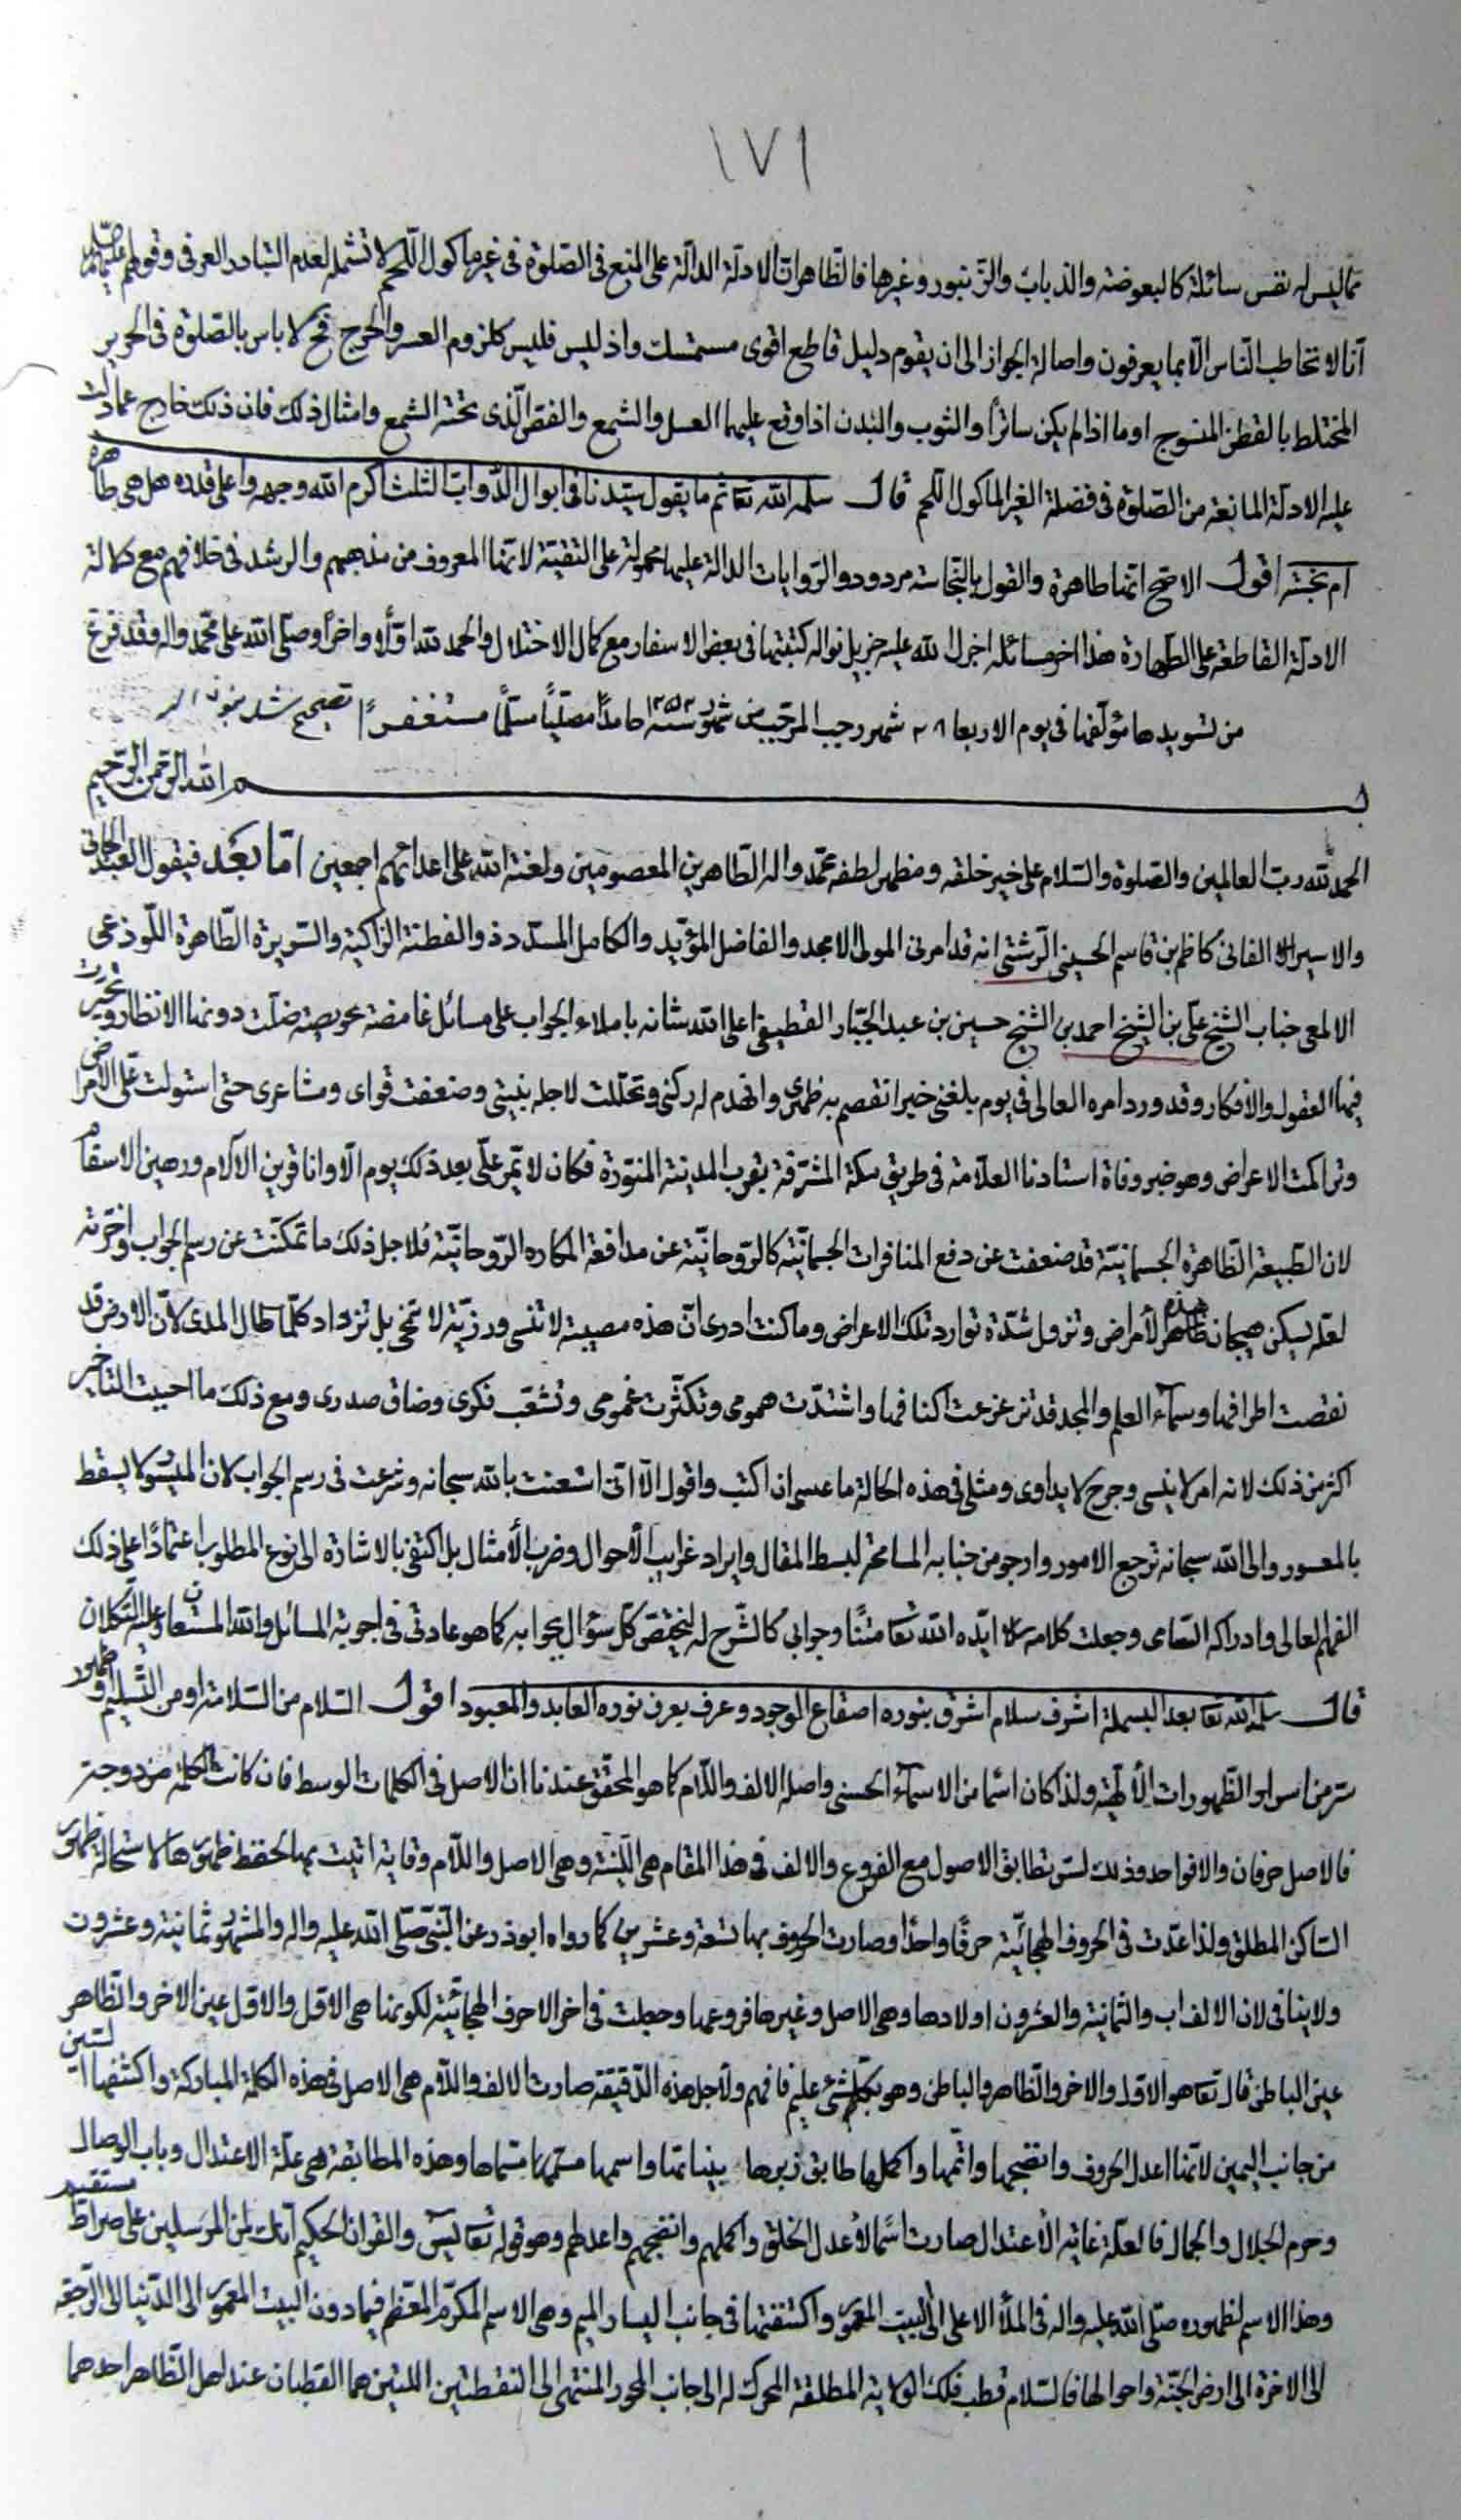 ١٧١
مما ليس له نفس سائلة كالبعوضة والذباب والزنبور وغيرها فالظاهر ان الادلة الدالة على المنع فى الصلوة فى غير ماكول اللحم لا تشمله لعدم التبادر العرفى وقولهم عليهم السلم
انا لا نخاطب الناس الا بما يعرفون واصالة الجواز الى ان يقوم دليل قاطع اقوى مستمسك واذ ليس فليس كلزوم العسر والحرج فح لا باس بالصلوة فى الحرير
المختلط بالقطن المنسوج اوما اذا لم يكن ساترا والثوب والبدن اذا وقع عليهما العسل والشمع والفص الذى تحته الشمع وامثال ذلك فان ذلك خارج عما دلت
عليه الادلة المانعة من الصلوة فى فضلة الغير الماكول اللحم قال سلمه الله تعا ثم ما يقول سيدنا فى ابوال الدواب الثلث اكرم الله وجهه واعلى قدره هل هى طاهرة
ام نجسة اقول الاصح انها طاهرة والقول بالنجاسة مردود والروايات الدالة عليها محمولة على التقية لانها المعروف من مذهبهم والرشد فى خلافهم مع كمال
الادلة القاطعة على الطهارة هذا اخر مسائله اجزل الله عليه جزيل نواله كتبتها فى بعض الاسفار مع كمال الاختلال والحمد لله اولا واخرا وصلى الله على محمد واله وقد فرغ
من تسويدها مؤلفها فى يوم الاربعا ٢٨ شهر رجب المرجب من شهور سنة ١٢٥٢ حامدا مصليا مسلما مستغفرا تصحيح شد
بسم الله الرحمن الرحيم
الحمد لله رب العالمين والصلوة والسلام على خير خلقه ومظهر لطفه محمد واله الطاهرين المعصومين ولعنة الله على اعدائهم اجمعين اما بعد فيقول العبد الجانى
والاسير الفانى كاظم بن قاسم الحسينى الرشتى انه قد امرنى المولى الامجد والفاضل المؤيد والكامل المسدد ذو الفطنة الزاكية والسريرة الطاهرة اللوذعى
الالمعى جناب الشيخ على بن الشيخ احمد بن الشيخ حسين بن عبد الجبار القطيفى اعلى الله شانه باملاء الجواب على مسائل غامضة عويصة ضلت دونها الانظار وتحيرت
فيها العقول والافكار وقد ورد امره العالى فى يوم بلغنى خبر انقصم به ظهرى وانهدم له ركنى وتحللت لاجله بنيتى وضعفت قواى ومشاعرى حتى استولت على الامراض
وتراكمت الاعراض وهو خبر وفاة استادنا العلامة فى طريق مكة المشرفة بقرب المدينة المنورة فكان لا يمر على بعد ذلك يوم الا وانا قرين الآلام ورهين الاسقام
لان الطبيعة الظاهرة الجسمانية قد ضعفت عن دفع المنافرات الجسمانية كالروحانية عن مدافعة المكاره الروحانية فلاجل ذلك ما تمكنت عن رسم الجواب واخرته
لعله يسكن هيجان هذه الامراض وتزول شدة توارد تلك الاعراض وما كنت ادرى ان هذه مصيبة لا تنسى ورزية لا تمحى بل تزداد كلما طال المدى لان الارض قد
نقصت اطرافها وسماء العلم والمجد قد تزعزعت اكنافها واشتدت همومى وتكثرت غمومى وتشعب فكرى وضاق صدرى ومع ذلك ما احببت التاخير
اكثر من ذلك لانه امر لا ينسى وجرح لا يداوى ومثلى فى هذه الحالة ما عسى ان اكتب واقول الا انى استعنت بالله سبحانه وشرعت فى رسم الجواب لان الميسور لا يسقط
بالمعسور والى الله سبحانه ترجع الامور وارجو من جنابه المسامحة لبسط المقال وايراد غرايب الاحوال وضرب الامثال بل اكتفى بالاشارة الى نوع المطلوب اعتمادا على ذلك
الفهم العالى وادراكه السامى وجعلت كلامه ايده الله تعا متنا وجوابى كالشرح له ليختص كل سؤال بجوابه كما هو عادتى فى اجوبة المسائل والله المستعان وعليه التكلان
قال سلمه الله تعا بعد البسملة اشرف سلام اشرق بنوره اصقاع الوجود وعرف بعرف نوره العابد والمعبود اقول السلام من السلامة او من التسليم وظهور
سر من اسرار الظهورات الالهية ولذا كان اسما من الاسماء الحسنى واصله الالف واللام كما هو المحقق عندنا ان الاصل فى الكلمات الوسط فان كانت الكلمة مزدوجة
فالاصل حرفان والا فواحد وذلك لسر تطابق الاصول مع الفروع والالف فى هذا المقام هى اللينة وهى الاصل واللام وقاية اتيت بها لحفظ ظهورها لاستحالة ظهور
الساكن المطلق ولذا عدت فى الحروف الهجائية حرفا واحدا وصارت الحروف بها تسعة وعشرين كما رواه ابوذر عن النبى صلى الله عليه واله والمشهور ثمانية وعشرون
ولا ينافى لان الالف اب والثمانية والعشرون اولادها وهى الاصل وغيرها فروعها وجعلت فى اخر الاحرف الهجائية لكونها هى الاول والاول عين الاخر والظاهر
عين الباطن قال تعا هو الاول والاخر والظاهر والباطن وهو بكل شئ عليم فافهم ولاجل هذه الدقيقة صارت الالف واللام هى الاصل فى هذه الكلمة المباركة واكتنفها السين
من جانب اليمين لانها اعدل الحروف وانضجها واتمها واكملها طابق زبرها بيناتها واسمها مسماها وهذه المطابقة هى علة الاعتدال وباب الوصال
وحرم الجلال والجمال فالعلة غاية الاعتدال صارت اسما لاعدل الخلق واكملهم وانضجهم واعدلهم وهو قوله تعا يس والقران الحكيم انك لمن المرسلين على صراط مستقيم
وهذا الاسم لظهوره صلى الله عليه واله فى الملا الاعلى الى البيت المعمور واكتنفتها فى جانب اليسار الميم وهى الاسم المكرم المعظم فيما دون البيت المعمور الى الدنيا الى الرجعة
الى الاخرة الى ارض الجنة واحوالها فالسلام قطب فلك الولاية المطلقة المحرك له الى جانب المحور المنتهى الى النقطتين اللتين هما القطبان عند اهل الظاهر احدهما